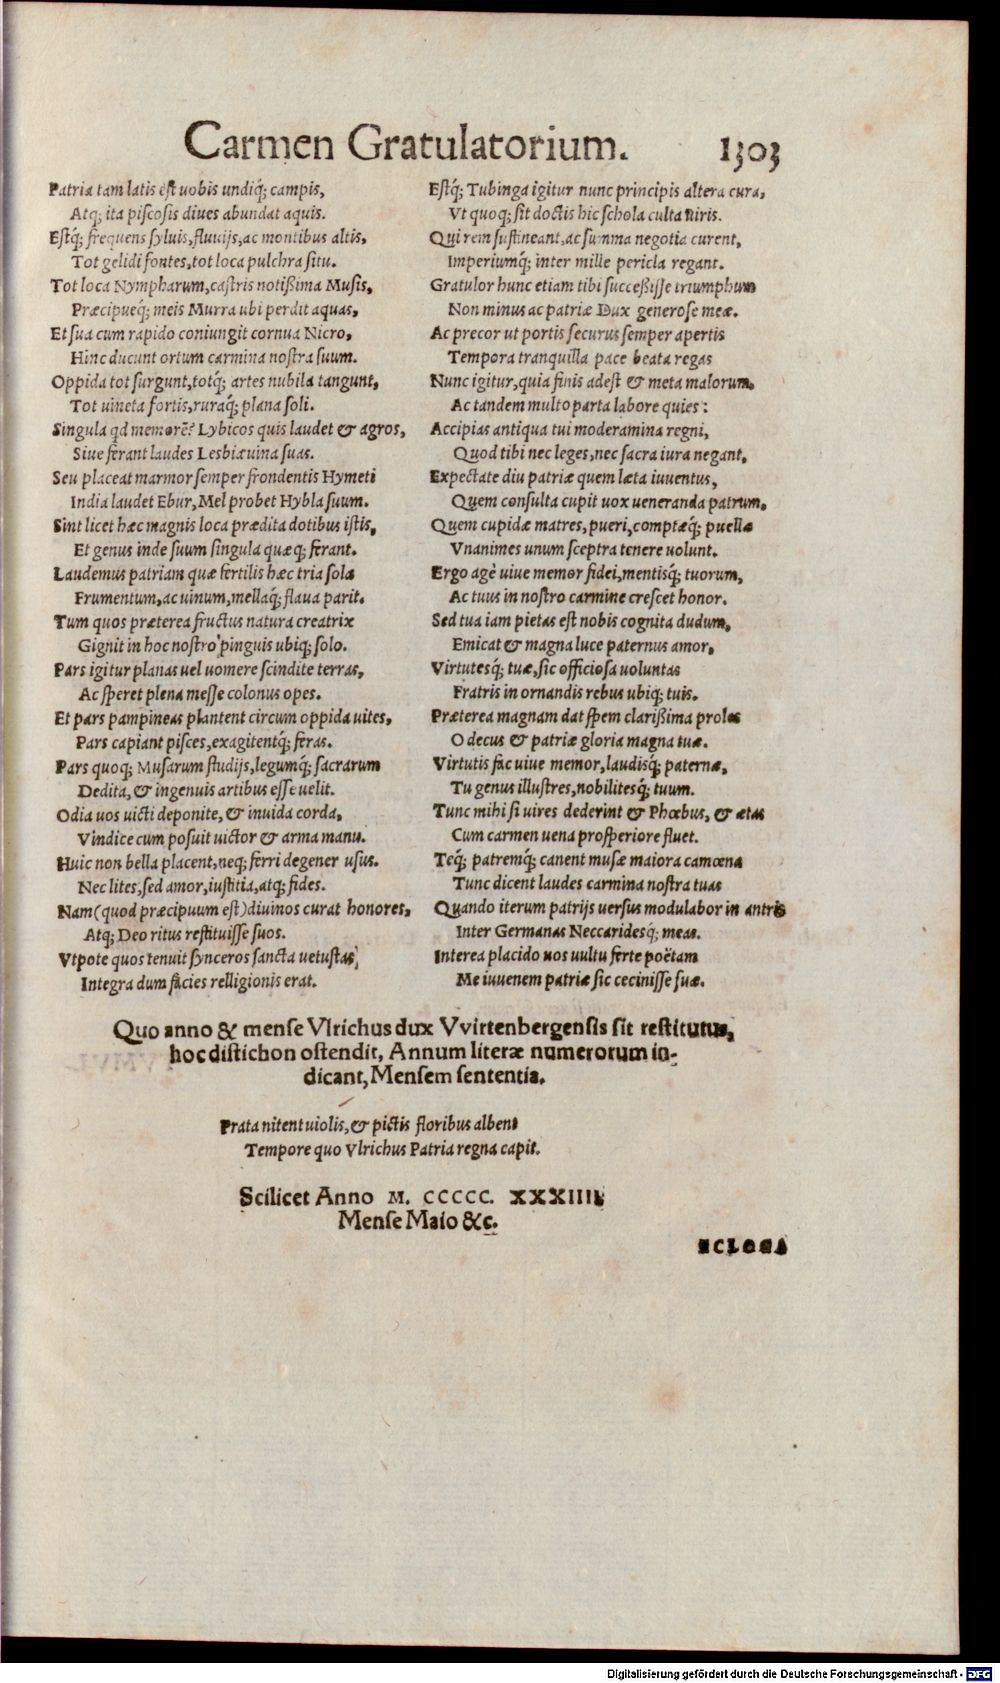 Carmen Gratulatorium. 1303
Patria tam latis est uobis undiq; campis,
Atq; ita piscosis diues abundat aquis.
Estq; frequens syluis, fluuijs, ac montibus altis,
Tot gelidi fontes, tot loca pulchra situ.
Tot loca Nympharum, castris notißima Musis,
Præcipueq; meis Murra ubi perdit aquas,
Et sua cum rapido coniungit cornua Nicro,
Hinc ducunt ortum carmina nostra suum.
Oppida tot surgunt, totq; artes nubila tangunt,
Tot uineta fortis, ruraq; plana soli.
Singula qd memorē? Lybicos quis laudet & agros,
Siue ferant laudes Lesbia uina suas.
Seu placeat marmor semper frondentis Hymeti
India laudet Ebur, Mel probet Hybla suum.
Sint licet hæc magnis loca prædita dotibus istis,
Et genus inde suum singula quæq; ferant.
Laudemus patriam quæ fertilis hæc tria sola
Frumentum, ac uinum, mellaq; flaua parit.
Tum quos præterea fructus natura creatrix
Gignit in hoc nostro pinguis ubiq; solo.
Pars igitur planas uel uomere scindite terras,
Ac speret plena messe colonus opes.
Et pars pampineas plantent circum oppida uites,
Pars capiant pisces, exagitentq; feras.
Pars quoq; Musarum studijs, legumq; sacrarum
Dedita, & ingenuis artibus esse uelit.
Odia uos uicti deponite, & inuida corda,
Vindice cum posuit uictor & arma manu.
Huic non bella placent, neq; ferri degener usus.
Nec lites, sed amor, iustitia, atq; fides.
Nam (quod præcipuum est) diuinos curat honores,
Atq; Deo ritus restituisse suos.
Vtpote quos tenuit synceros sancta uetustas,
Integra dum facies relligionis erat.
Estq; Tubinga igitur nunc principis altera cura,
Vt quoq; sit doctis hic schola culta uiris.
Qui rem sustineant, ac summa negotia curent,
Imperiumq; inter mille pericla regant.
Gratulor hunc etiam tibi succeßisse triumphum
Non minus ac patriæ Dux generose meæ.
Ac precor ut portis securus semper apertis
Tempora tranquilla pace beata regas
Nunc igitur, quia finis adest & meta malorum,
Ac tandem multo parta labore quies:
Accipias antiqua tui moderamina regni,
Quod tibi nec leges, nec sacra iura negant,
Expectate diu patriæ quem læta iuuentus,
Quem consulta cupit uox ueneranda patrum,
Quem cupidæ matres, pueri, comptæq; puellæ
Vnanimes unum sceptra tenere uolunt.
Ergo agè uiue memor fidei, mentisq; tuorum,
Ac tuus in nostro carmine crescet honor.
Sed tua iam pietas est nobis cognita dudum,
Emicat & magna luce paternus amor,
Virtutesq; tuæ, sic officiosa uoluntas
Fratris in ornandis rebus ubiq; tuis.
Præterea magnam dat spem clarißima proles
O decus & patriæ gloria magna tuæ.
Virtutis fac uiue memor, laudisq; paternæ,
Tu genus illustres, nobilitesq; tuum.
Tunc mihi si uires dederint & Phœbus, & ætas
Cum carmen uena prosperiore fluet.
Teq; patremq; canent musæ maiora camœna
Tunc dicent laudes carmina nostra tuas
Quando iterum patrijs uersus modulabor in antris
Inter Germanas Neccaridesq; meas.
Interea placido uos uultu ferte poëtam
Me iuuenem patriæ sic cecinisse suæ.
Quo anno & mense Vlrichus dux Vvirtenbergensis sit restitutus,
hoc distichon ostendit, Annum literæ numerorum in-
dicant, Mensem sententia.
Prata nitent uiolis, & pictis floribus albent
Tempore quo Vlrichus Patria regna capit.
Scilicet Anno M. CCCCC. XXXIIII.
Mense Maio &c.
ECLOGA
Digitalisierung gefördert durch die Deutsche Forschungsgemeinschaft - DFG